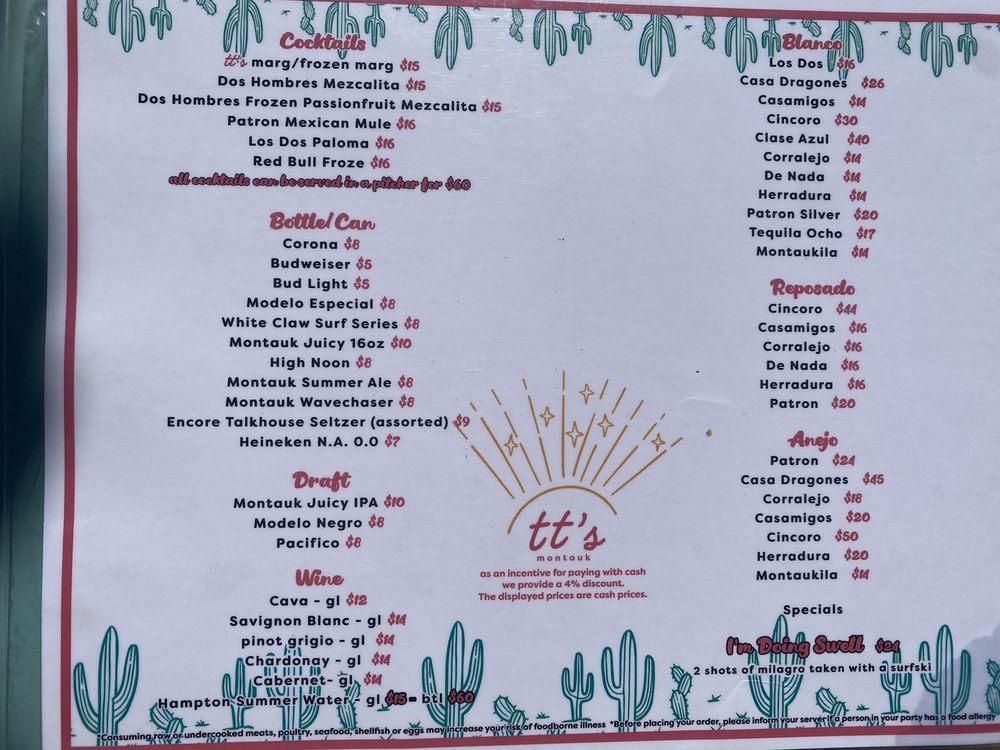 Cocktails
tt's marg/frozen marg $15
Dos Hombres Mezcalita $15
Dos Hombres Frozen Passionfruit Mezcalita $15
Patron Mexican Mule $16
Los Dos Paloma $16
Red Bull Froze $16
all cocktails can be served in a pitcher for $60
Bottle/Can
Corona $8
Budweiser $5
Bud Light $5
Modelo Especial $8
White Claw Surf Series $8
Montauk Juicy 16oz $10
High Noon $8
Montauk Summer Ale $8
Montauk Wavechaser $8
Encore Talkhouse Seltzer (assorted) $9
Heineken N.A. 0.0 $7
Draft
Montauk Juicy IPA $10
Modelo Negro $8
Pacifico $8
Wine
Cava - gl $12
Savignon Blanc - gl $14
pinot grigio - gl $14
Chardonay - gl $14
Cabernet- gl $14
Hampton Summer Water - gl $15 - btl $60
tt's
montauk
as an incentive for paying with cash
we provide a 4% discount.
The displayed prices are cash prices.
Blanco
Los Dos $16
Casa Dragones $26
Casamigos $14
Cincoro $30
Clase Azul $40
Corralejo $14
De Nada $14
Herradura $14
Patron Silver $20
Tequila Ocho $17
Montaukila $14
Reposado
Cincoro $44
Casamigos $16
Corralejo $16
De Nada $16
Herradura $16
Patron $20
Anejo
Patron $24
Casa Dragones $45
Corralejo $18
Casamigos $20
Cincoro $50
Herradura $20
Montaukila $14
Specials
I'm Doing Swell $24
2 shots of milagro taken with a surfski
*Consuming raw or undercooked meats, poultry, seafood, shellfish or eggs may increase your risk of foodborne illness *Before placing your order, please inform your server if a person in your party has a food allergy